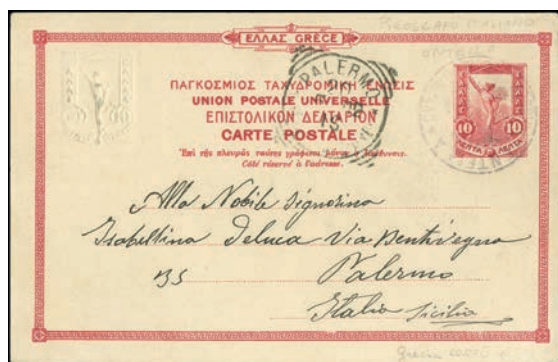 PIROSCAFO ITALIANO
ΕΛΛΑΣ GRÈCE
ΠΑΓΚΟΣΜΙΟΣ ΤΑΧΥΔΡΟΜΙΚΗ ΕΝΩΣΙΣ
UNION POSTALE UNIVERSELLE
ΕΠΙΣΤΟΛΙΚΟΝ ΔΕΛΤΑΡΙΟΝ
CARTE POSTALE
Ἐπὶ τῆς πλευρᾶς ταύτης γράφεται μόνον ἡ διεύθυνσις.
Côté réservé à l'adresse.
PALERMO
10 10
ΛΕΠΤΑ ΛΕΠΤΑ
Alla Nobile Signorina
Isabellina Deluca Via Bentivegna
135 Palermo
Italia Sicilia